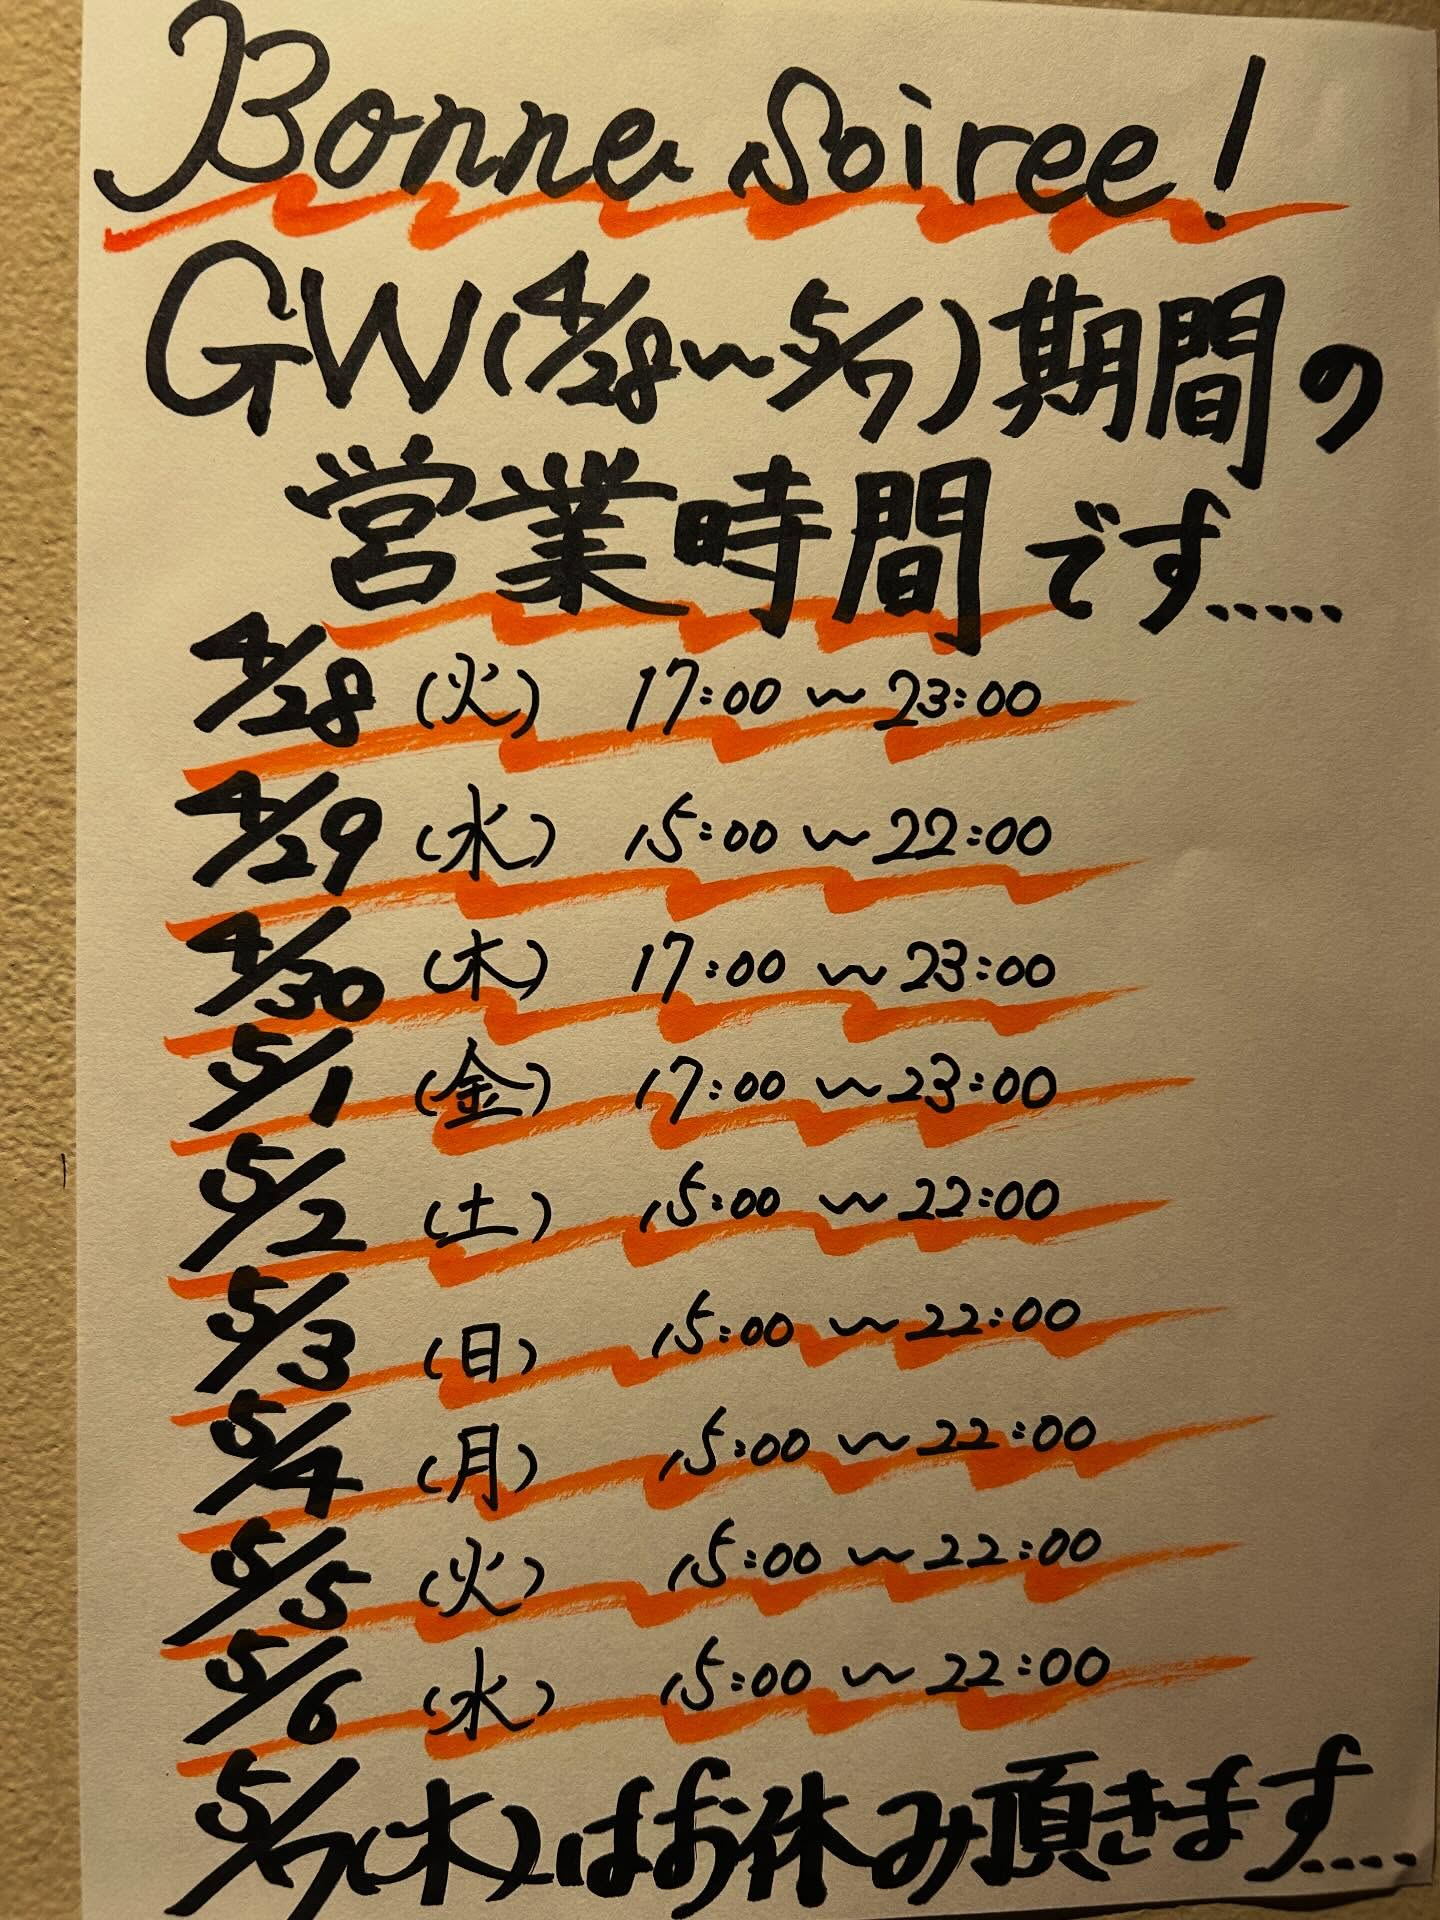 Bonne Soiree!
GW(4/28〜5/7)期間の
営業時間です.....
4/28 (火) 17:00〜23:00
4/29 (水) 15:00〜22:00
4/30 (木) 17:00〜23:00
5/1 (金) 17:00〜23:00
5/2 (土) 15:00〜22:00
5/3 (日) 15:00〜22:00
5/4 (月) 15:00〜22:00
5/5 (火) 15:00〜22:00
5/6 (水) 15:00〜22:00
5/7(木)はお休み頂きます....